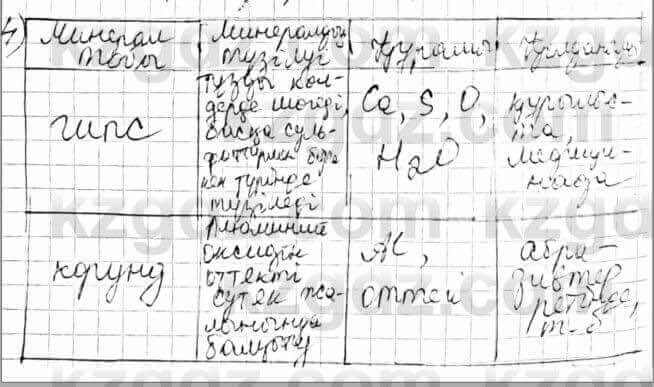 4)
Минерал тобы
Минералдың түзілуі
Құрамы
Қолданылуы
гипс
тұзды көл-
дерде шөгеді,
басқа суль-
фаттармен бірге
түрінде
түзіледі
Ca, S, O,
H2O
құрылыс-
та,
медицинада
корунд
Алюминий
оксидін
оттекті
сутек жа-
лынында
балқыту
Al,
оттегі
абра-
зивтер
ретінде,
т-б